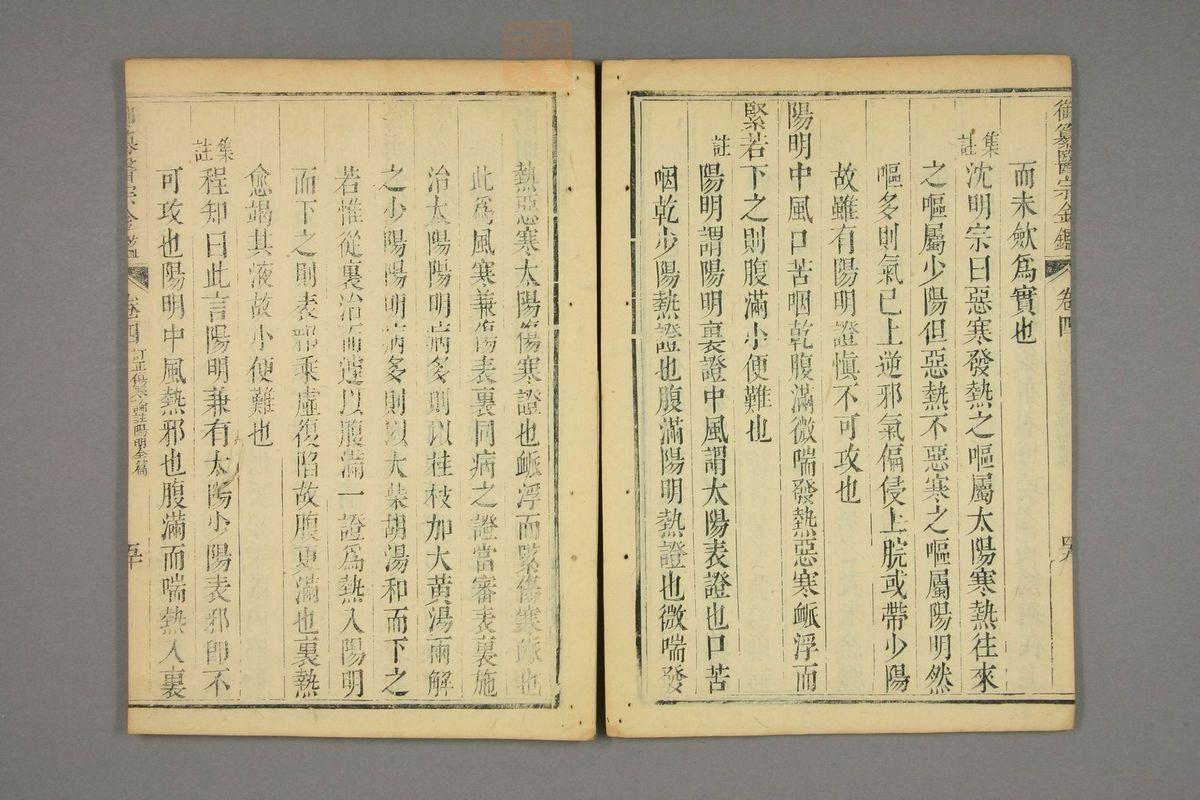 御纂醫宗金鑑 卷四 四九
而未歛爲實也
集註 沈明宗曰惡寒發熱之嘔屬太陽寒熱往來
之嘔屬少陽但惡熱不惡寒之嘔屬陽明然
嘔多則氣已上逆邪氣偏侵上脘或帶少陽
故雖有陽明證愼不可攻也
陽明中風口苦咽乾腹滿微喘發熱惡寒脈浮而
緊若下之則腹滿小便難也
註 陽明謂陽明裏證中風謂太陽表證也口苦
咽乾少陽熱證也腹滿陽明熱證也微喘發
熱惡寒太陽傷寒證也脈浮而緊傷寒脈也
此爲風寒兼傷表裏同病之證當審表裏施
治太陽陽明病多則以桂枝加大黃湯兩解
之少陽陽明病多則以大柴胡湯和而下之
若惟從裏治而遽以腹滿一證爲熱入陽明
而下之則表邪乘虛復陷故腹更滿也裏熱
愈竭其液故小便難也
集註 程知曰此言陽明兼有太陽少陽表邪卽不
可攻也陽明中風熱邪也腹滿而喘熱入裏
御纂醫宗金鑑 卷四 訂正傷寒論註陽明全篇 五十